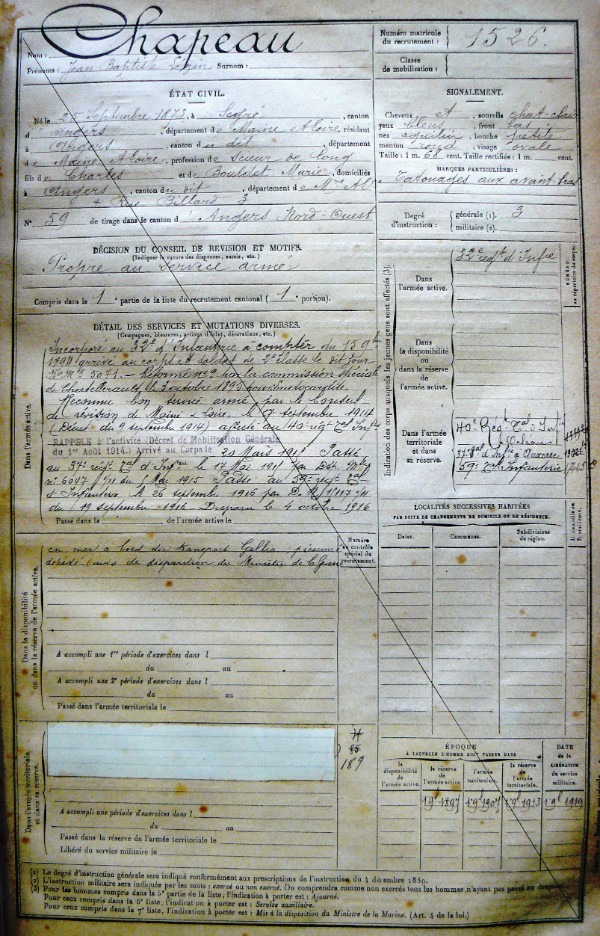 Chapeau
Nom :
Prénoms : Jean Baptiste Surnom :
Numéro matricule
du recrutement :
1526.
Classe
de mobilisation :
ÉTAT CIVIL.
Né le 25 Septembre 1873, à , canton
d'Angers, département de Maine et Loire, résidant
Angers, canton du dit, département
de Maine et Loire, profession de Scieur de long
fils de Charles et de Marie, domiciliés
à Angers, canton du dit, département de Mne & L.
Rue Billard 3
N° 59 de tirage dans le canton d'Angers Nord-Ouest
SIGNALEMENT.
Cheveux et sourcils chat-clair
yeux bleus, front bas
nez aquilin, bouche petite
menton rond, visage ovale
Taille : 1 m. 66 cent. Taille rectifiée : 1 m. cent.
MARQUES PARTICULIÈRES :
Tatouages aux avant bras
Degré
d'instruction :
générale (1). 3
militaire (2).
DÉCISION DU CONSEIL DE REVISION ET MOTIFS.
(Indiquer la nature des dispenses, sursis, etc.)
Propre au service armé
Compris dans la 1e partie de la liste du recrutement cantonal (1e portion).
DÉTAIL DES SERVICES ET MUTATIONS DIVERSES.
(Campagnes, blessures, actions d'éclat, décorations, etc.)
Dans l'armée active.
Incorporé au 32e d'Infanterie à compter du 15 9bre
1894 arrivé au corps et soldat de 2e classe le dit jour
N° Mle 5071. - Réformé n° 2 par la commission spéciale
de Chatellerault, le 3 octobre 1895
Reconnu bon service armé par le Conseil
de révision de Maine & Loire, le 17 septembre 1914
(Décret du 9 septembre 1914) affecté au 40e régt Tal Inftie
RAPPELÉ à l'activité (Décret de Mobilisation Générale
du 1er Août 1914.) Arrivé au Corps le 20 Mars 1915 Passé
au 37e régt Tal d'Inf le 17 Mai 1915 par
n° 6047 du 5 Mai 1915 Passé au 59e régt Tal
d'Infanterie le 26 septembre 1916 par
du 19 septembre 1916 Disparu le 4 octobre 1916
Passé dans la de l'armée active le
Indication des corps auxquels les jeunes gens sont affectés (3).
NUMÉRO
au répertoire du corps.
Dans
l'armée active.
32e régt d'Infie
Dans
la disponibilité
ou dans la réserve
de l'armée active.
Dans l'armée
territoriale et dans
sa réserve.
40e Régt Tal d'Infie
37e Tal d'Infie Auxerre
59e Tal infanterie
LOCALITÉS SUCCESSIVES HABITÉES
PAR SUITE DE CHANGEMENTS DE DOMICILE OU DE RÉSIDENCE.
Dates.
Communes.
Subdivisions
de région.
D. domicile
R. résidence.
Dans la disponibilité
ou dans la réserve de l'armée active.
Numéro
au contrôle
spécial du
recrutement.
en mer à bord du transport Gallia, présumé
décédé (avis de disparition du Ministre de la Guerre
A accompli une 1re période d'exercices dans l
du au
A accompli une 2e période d'exercices dans l
du au
Passé dans l'armée territoriale le
Dans l'armée territoriale
et dans sa réserve.
189
A accompli une période d'exercices dans l
du au
Passé dans la réserve de l'armée territoriale le
Libéré du service militaire le
ÉPOQUE
À LAQUELLE L'HOMME DOIT PASSER DANS
DATE
de la
LIBÉRATION
du service
militaire.
la
disponibilité
de
l'armée active.
la réserve
de
l'armée active.
l'armée
territoriale.
la réserve
de l'armée
territoriale.
1 9e 1897
1 9e 1907
1 9e 1913
1 9e 1919
(1) Le degré d'instruction générale sera indiqué conformément aux prescriptions de l'instruction du 4 décembre 1889.
(2) L'instruction militaire sera indiquée par les mots : exercé ou non exercé. On comprendra comme non exercés tous les hommes n'ayant pas passé au drapeau.
(3) Pour les hommes compris dans la 5e partie de la liste, l'indication à porter est : Ajourné.
Pour ceux compris dans la 6e liste, l'indication à porter est : Service auxiliaire.
Pour ceux compris dans la 7e liste, l'indication à porter est : Mis à la disposition du Ministre de la Marine. (Art. 4 de la loi.)